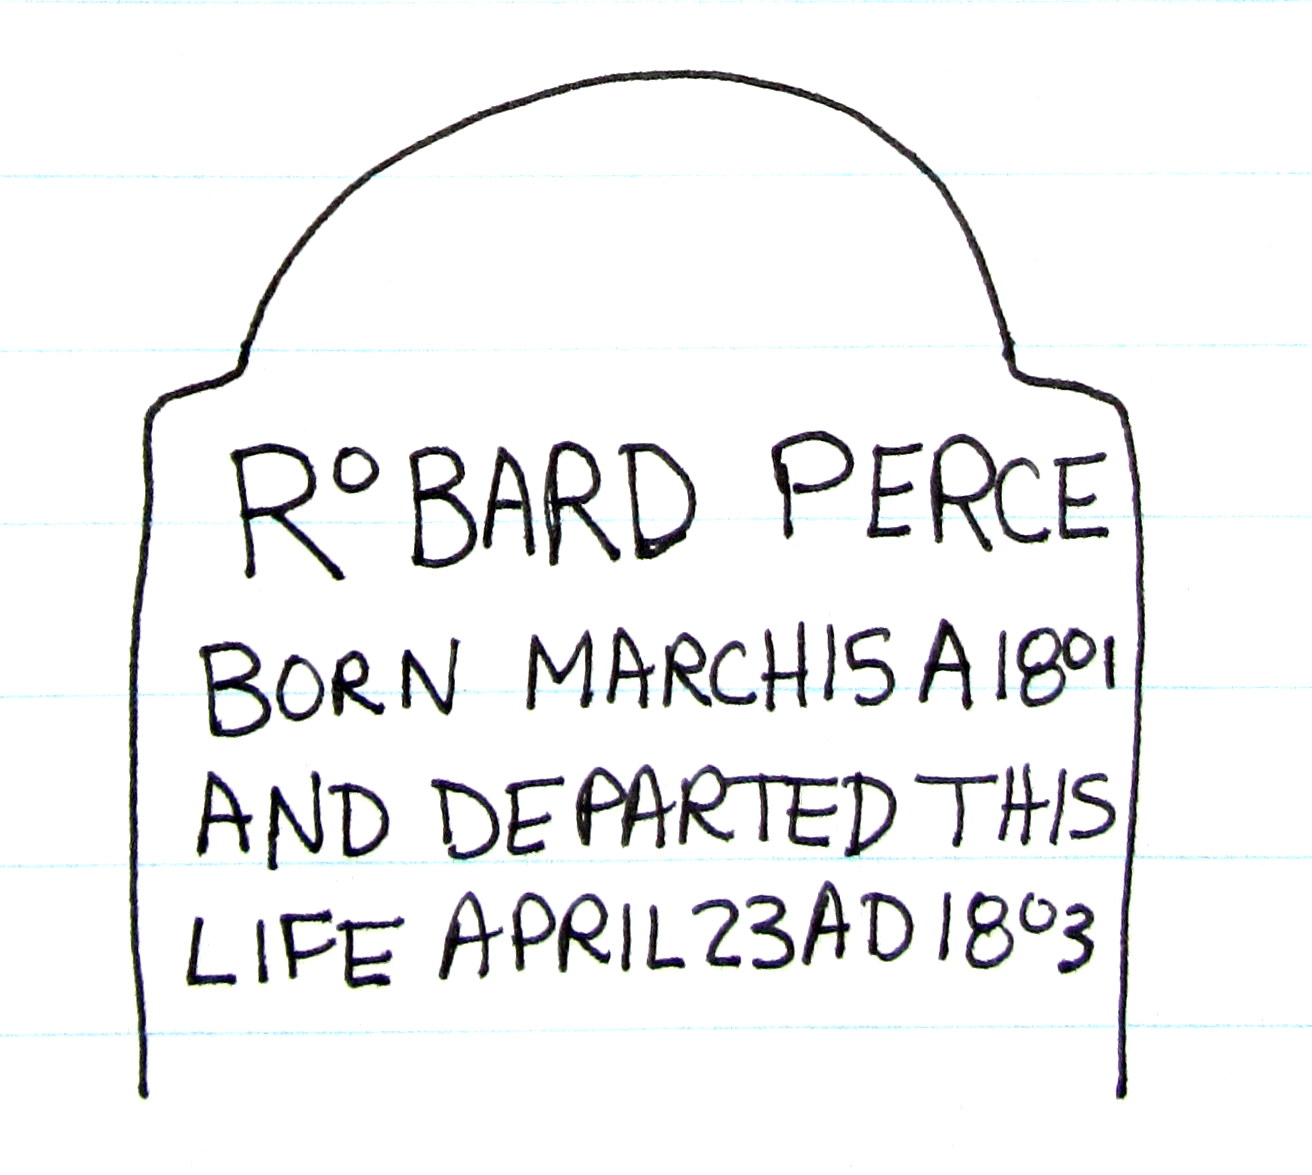 RoBARD PERCE
BORN MARCH15 A 1801
AND DEPARTED THIS
LIFE APRIL 23 AD 1803